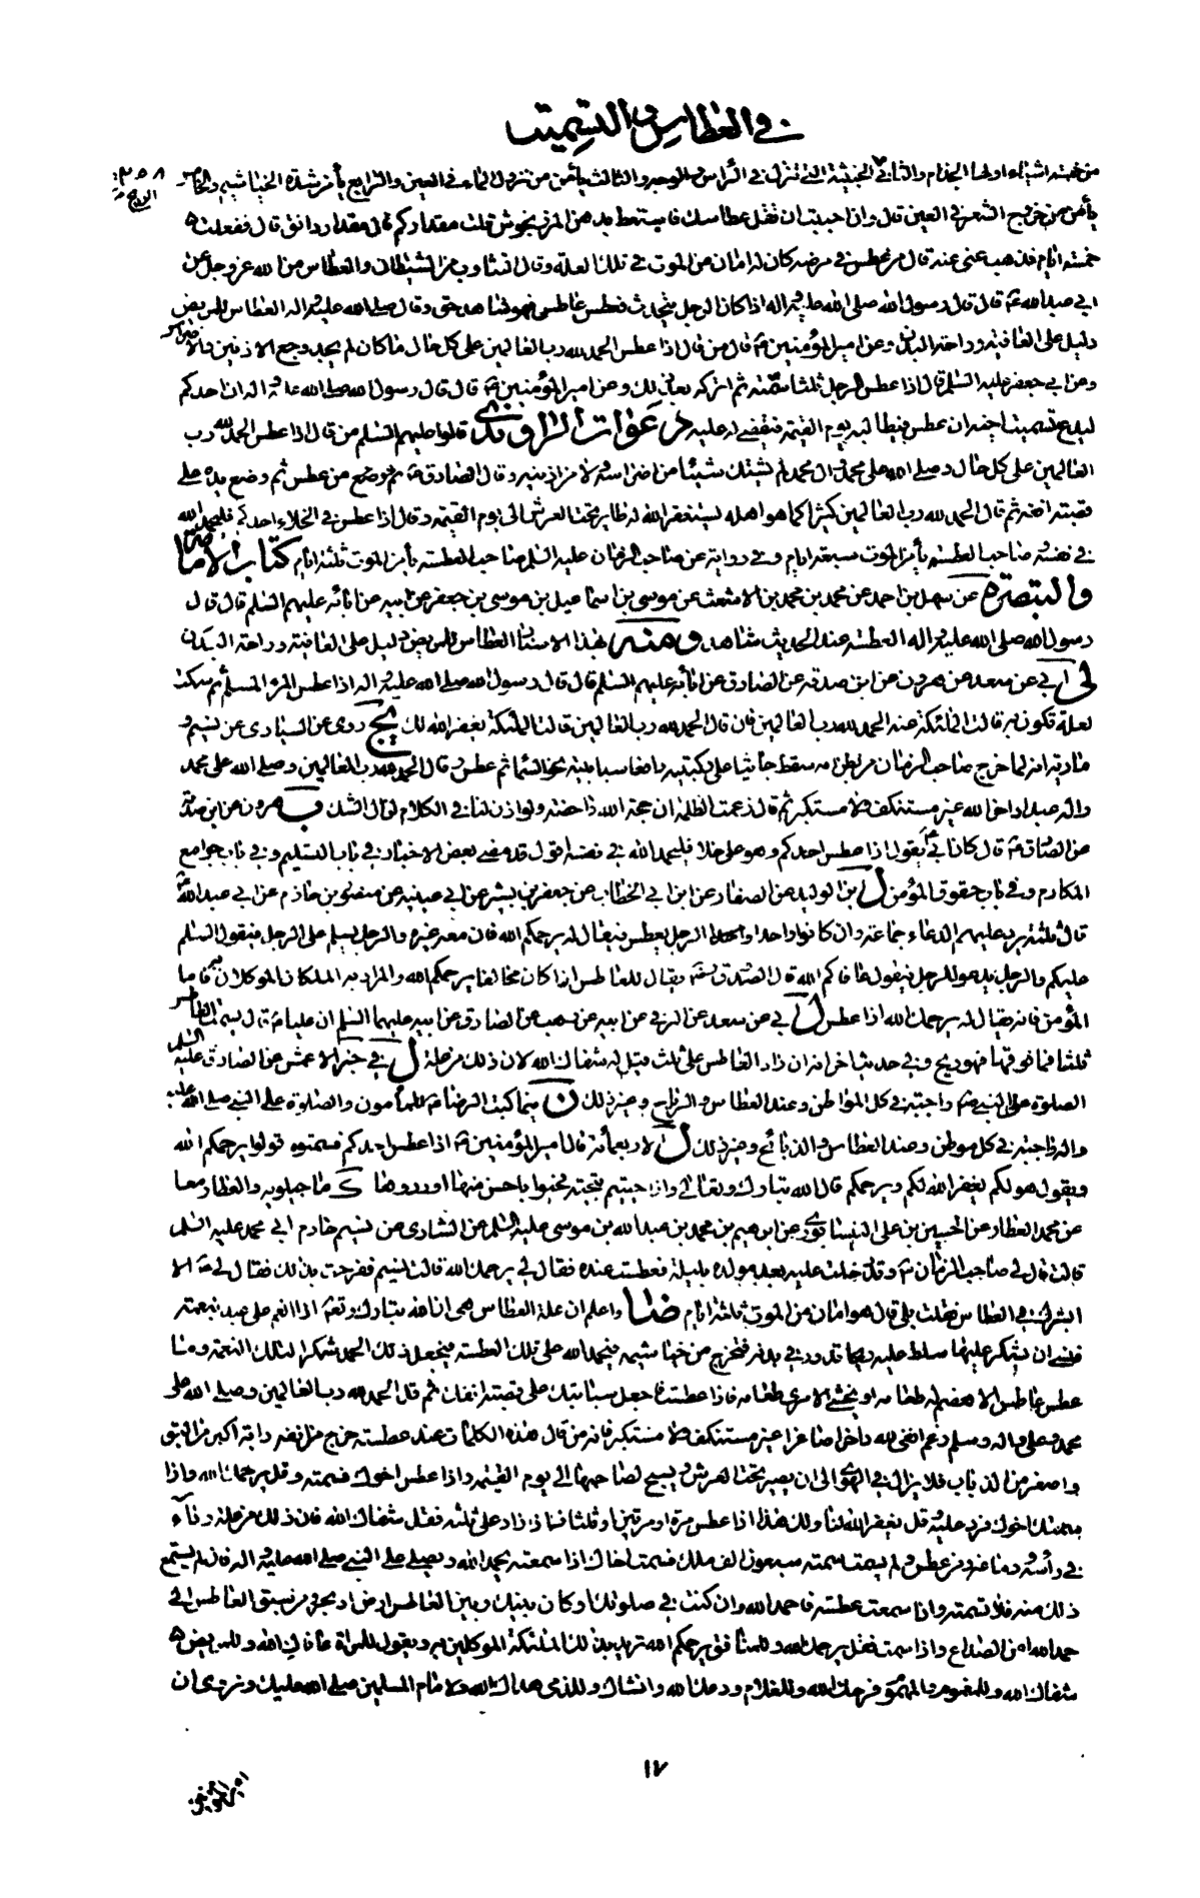 في العطاس والتسميت
من خمسة اشياء اولها الجذام والثاني الريح الخبيثة التي تنزل في الراس والوجه والثالث يأمن من نزول الماء في العين والرابع يأمن شدة الخياشيم والخامس
يأمن من خروج الشعر في العين قال وان احببت ان تقل عطاسك فاستعط بدهن المرزنجوش قلت مقدار كم قال مقدار دانق قال ففعلت
خمسة ايام فذهب عني عنه قال من عطس في مرضه كان له امان من الموت في تلك العلة وقال التثاوب من الشيطان والعطاس من الله عز وجل عن
ابي عبد الله ع قال قال رسول الله صلى الله عليه واله اذا كان الرجل يتحدث فعطس عاطس فهو شاهد حق وقال صلى الله عليه واله العطاس للمريض
دليل على العافية وراحة البدن وعن امير المؤمنين ع قال من قال اذا عطس الحمد لله رب العالمين على كل حال ما كان لم يجد وجع الاذنين والاضراس
وعن ابي جعفر عليه السلم قال اذا عطس الرجل ثلثا فسمته ثم اتركه بعد ذلك وعن امير المؤمنين ع قال قال رسول الله صلى الله عليه واله ان احدكم
ليدع تسميت اخيه ان عطس فيطالبه يوم القيمة فيقضي له عليه دعوات الراوندي قالوا عليهم السلم من قال اذا عطس الحمد لله رب
العالمين على كل حال وصلى الله على محمد وال محمد لم يشتك شيئا من اضراسه ولا من اذنيه وقال الصادق ع من عطس ثم وضع يده على
قصبة انفه ثم قال الحمد لله رب العالمين كثيرا كما هو اهله يستغفر الله له طاير تحت العرش الى يوم القيمة وقال اذا عطس في الخلاء احدكم فليحمد الله
في نفسه وصاحب العطسة يأمن الموت سبعة ايام وفي رواية عن صاحب الزمان عليه السلم صاحب العطسة يأمن الموت ثلثة ايام كتاب الامامة
والتبصرة عن سهل بن احمد عن محمد بن محمد بن الاشعث عن موسى بن اسماعيل بن موسى بن جعفر عن ابيه عن ابائه عليهم السلم قال قال
رسول الله صلى الله عليه واله العطسة عند الحديث شاهد ومنه بهذا الاسناد العطاس للمريض دليل على العافية وراحة البدن
لى ابي عن سعد عن هرون عن ابن صدقة عن الصادق عن ابائه عليهم السلم قال قال رسول الله صلى الله عليه واله اذا عطس المرء المسلم ثم سكت
لعلة تكون به قالت الملئكة عنه الحمد لله رب العالمين فان قال الحمد لله رب العالمين قالت الملئكة يغفر الله لك يج روى عن السياري عن نسيم و
مارية انه لما خرج صاحب الزمان من بطن امه سقط جاثيا على ركبتيه رافعا سبابتيه نحو السماء ثم عطس وقال الحمد لله رب العالمين وصلى الله على محمد
واله عبدا داخرا لله غير مستنكف ولا مستكبر ثم قال زعمت الظلمة ان حجة الله داحضة ولو اذن لنا في الكلام لزال الشك ب هرون عن ابن صدقة
عن الصادق ع قال كان ابي ع يقول اذا عطس احدكم وهو على خلا فليحمد الله في نفسه اقول قد مضى بعض الاخبار في باب التسليم وفي باب جوامع
المكارم وفي باب حقوق المؤمن ل ابن الوليد عن الصفار عن ابن ابي الخطاب عن جعفر بن بشير عن ابي عيينه عن منصور بن حازم عن ابي عبد الله ع
قال ثلثة يرد عليهم الدعاء جماعة وان كانوا واحدا الرجل يعطس فيقال له يرحمكم الله فان معه غيره والرجل يسلم على الرجل فيقول السلم
عليكم والرجل يدعو للرجل فيقول عافاكم الله قال الصدوق ره يقال للعاطس اذا كان مخالفا يرحمكم الله والمراد به الملكان الموكلان به فاما
المؤمن فانه يقال له يرحمك الله اذا عطس ل ابي عن سعد عن البرقي عن ابيه عن وهب عن الصادق عن ابيه عليهما السلم ان عليا ع قال يسمت العاطس
ثلثا فما فوقها فهو ريح وفي حديث اخر انه ان زاد العاطس على ثلث قيل له شفاك الله لان ذلك من علة ل في خبر الاعمش عن الصادق عليه السلم
الصلوة على النبي ص واجبة في كل المواطن وعند العطاس والرياح وغير ذلك ن فيما كتب الرضا ع للمأمون والصلوة على النبي صلى الله عليه
واله واجبة في كل موطن وعند العطاس والذبائح وغير ذلك ل الاربعمأة قال امير المؤمنين ع اذا عطس احدكم فسمتوه قولوا يرحمكم الله
ويقول هو لكم يغفر الله لكم ويرحمكم قال الله تبارك وتعالى واذا حييتم بتحية فحيوا باحسن منها او ردوها ك ماجيلويه والعطار معا
عن محمد العطار عن الحسين بن علي النيسابوري عن ابرهيم بن محمد بن عبد الله بن موسى عليه السلم عن السياري عن نسيم خادم ابي محمد عليه السلم
قالت قال لي صاحب الزمان ع وقد دخلت عليه بعد مولده بليلة فعطست عنده فقال لي يرحمك الله قالت نسيم ففرحت بذلك فقال لي ع الا
ابشرك في العطاس فقلت بلى قال هو امان من الموت ثلثة ايام ضا واعلم ان علة العطاس هي ان الله تبارك وتعالى اذا انعم على عبد بنعمة
فنسي ان يشكر عليها سلط عليه ريحا تدور في بدنه فتخرج من خياشيمه فيحمد الله على تلك العطسة فيجعل ذلك الحمد شكرا لتلك النعمة وما
عطس عاطس الا هضم له طعامه او يتجشى الا مرى طعامه فاذا عطست فاجعل سبابتك على قصبة انفك ثم قل الحمد لله رب العالمين وصلى الله على
محمد وعلى اله وسلم رغم انفي لله داخرا صاغرا غير مستنكف ولا مستكبر فانه من قال هذه الكلمات عند عطسته خرج من انفه دابة اكبر من البق
واصغر من الذباب فلا يزال في الهوى الى ان يصير تحت العرش ويسبح لصاحبها الى يوم القيمة واذا عطس اخوك فسمته وقل يرحمك الله واذا
سمتك اخوك فرد عليه وقل يغفر الله لنا ولك هذا اذا عطس مرة او مرتين او ثلثا فاذا زاد على ثلثة فقل شفاك الله فان ذلك من علة وداء
في رأسه ودماغه ومن عطس ولم يسمت سمته سبعون الف ملك فسمت اخاك اذا سمعته يحمد الله ويصلي على النبي صلى الله عليه واله فان لم تسمع
ذلك منه فلا تسمته واذا سمعت عطسة فاحمد الله وان كنت في صلوتك او كان بينك وبين العاطس ارض او بحر ومن سبق العاطس الى
حمد الله امن الصداع واذا سمت فقل يرحمك الله وللمنافق يرحمكم الله تريد بذلك الملئكة الموكلين به ويقول للمرأة عافاك الله وللمريض
شفاك الله وللمغموم والمهموم فرحك الله وللغلام وودعك الله وانشاك وللذمي هداك الله ولامام المسلمين صلى الله عليك ونروي ان
١٧